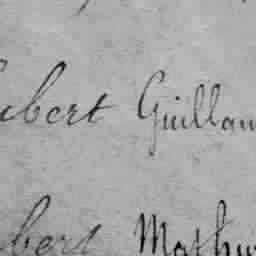 ubert Guillau
bert Mathu